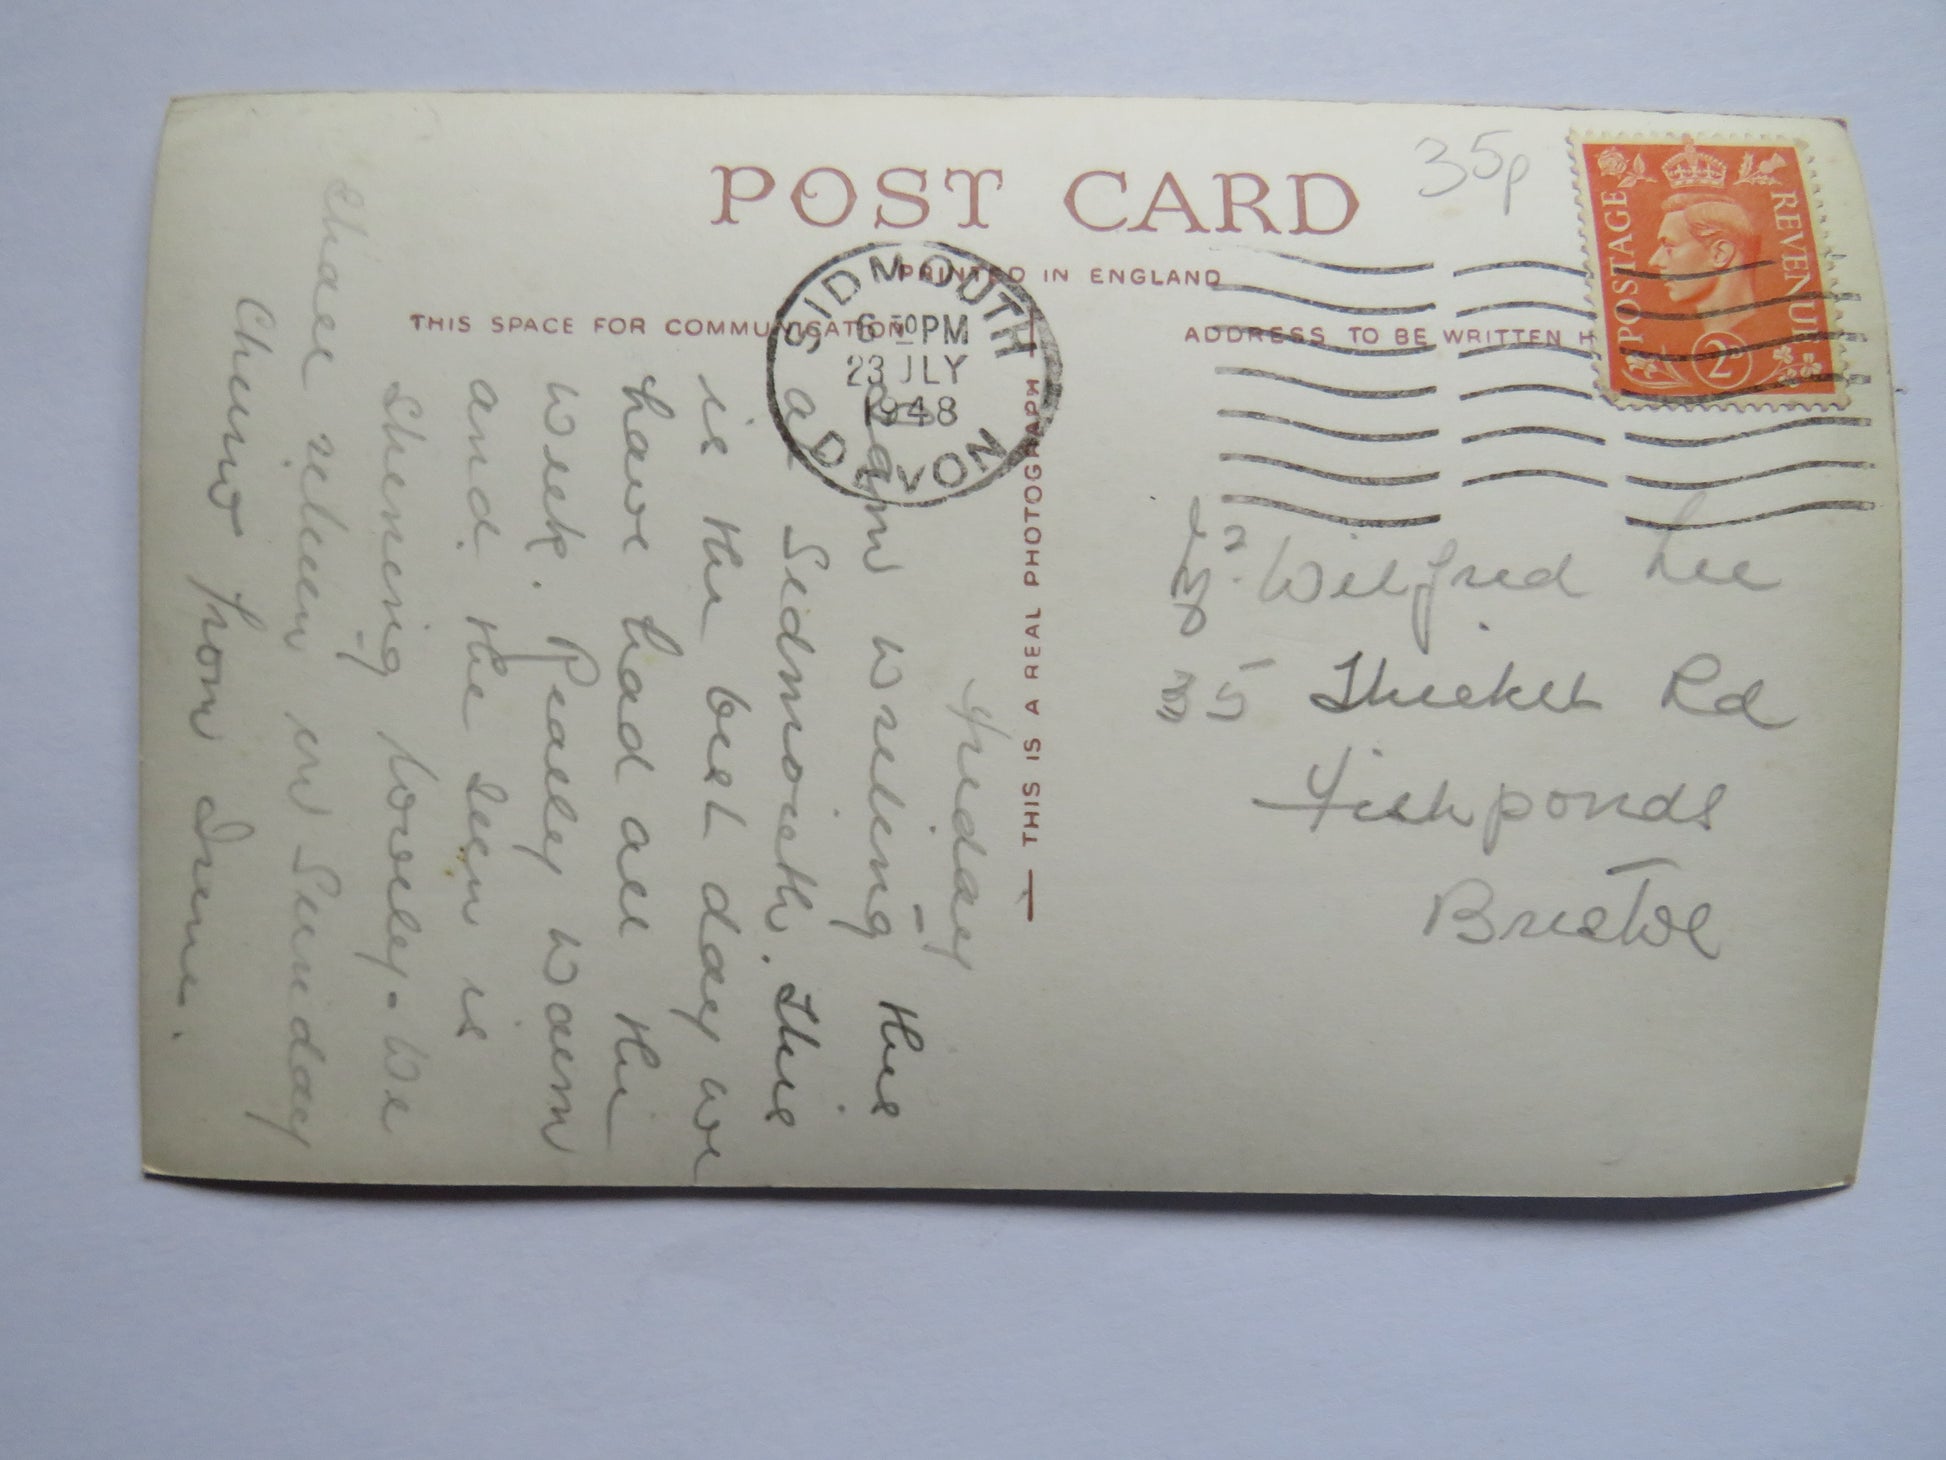 POST CARD
35p
PRINTED IN ENGLAND
THIS SPACE FOR COMMUNICATION
ADDRESS TO BE WRITTEN H
POSTAGE
REVENUE
2D
SIDMOUTH
6 30 PM
23 JLY
1948
DEVON
THIS IS A REAL PHOTOGRAPH
Wilfred Lee
35 Thicket Rd
Fishponds
Bristol
Friday
am writing this
at Sidmouth. This
is the best day we
have had all the
week. Really warm
and the sun is
shining lovely. We
shall return on Sunday
Cheerio from